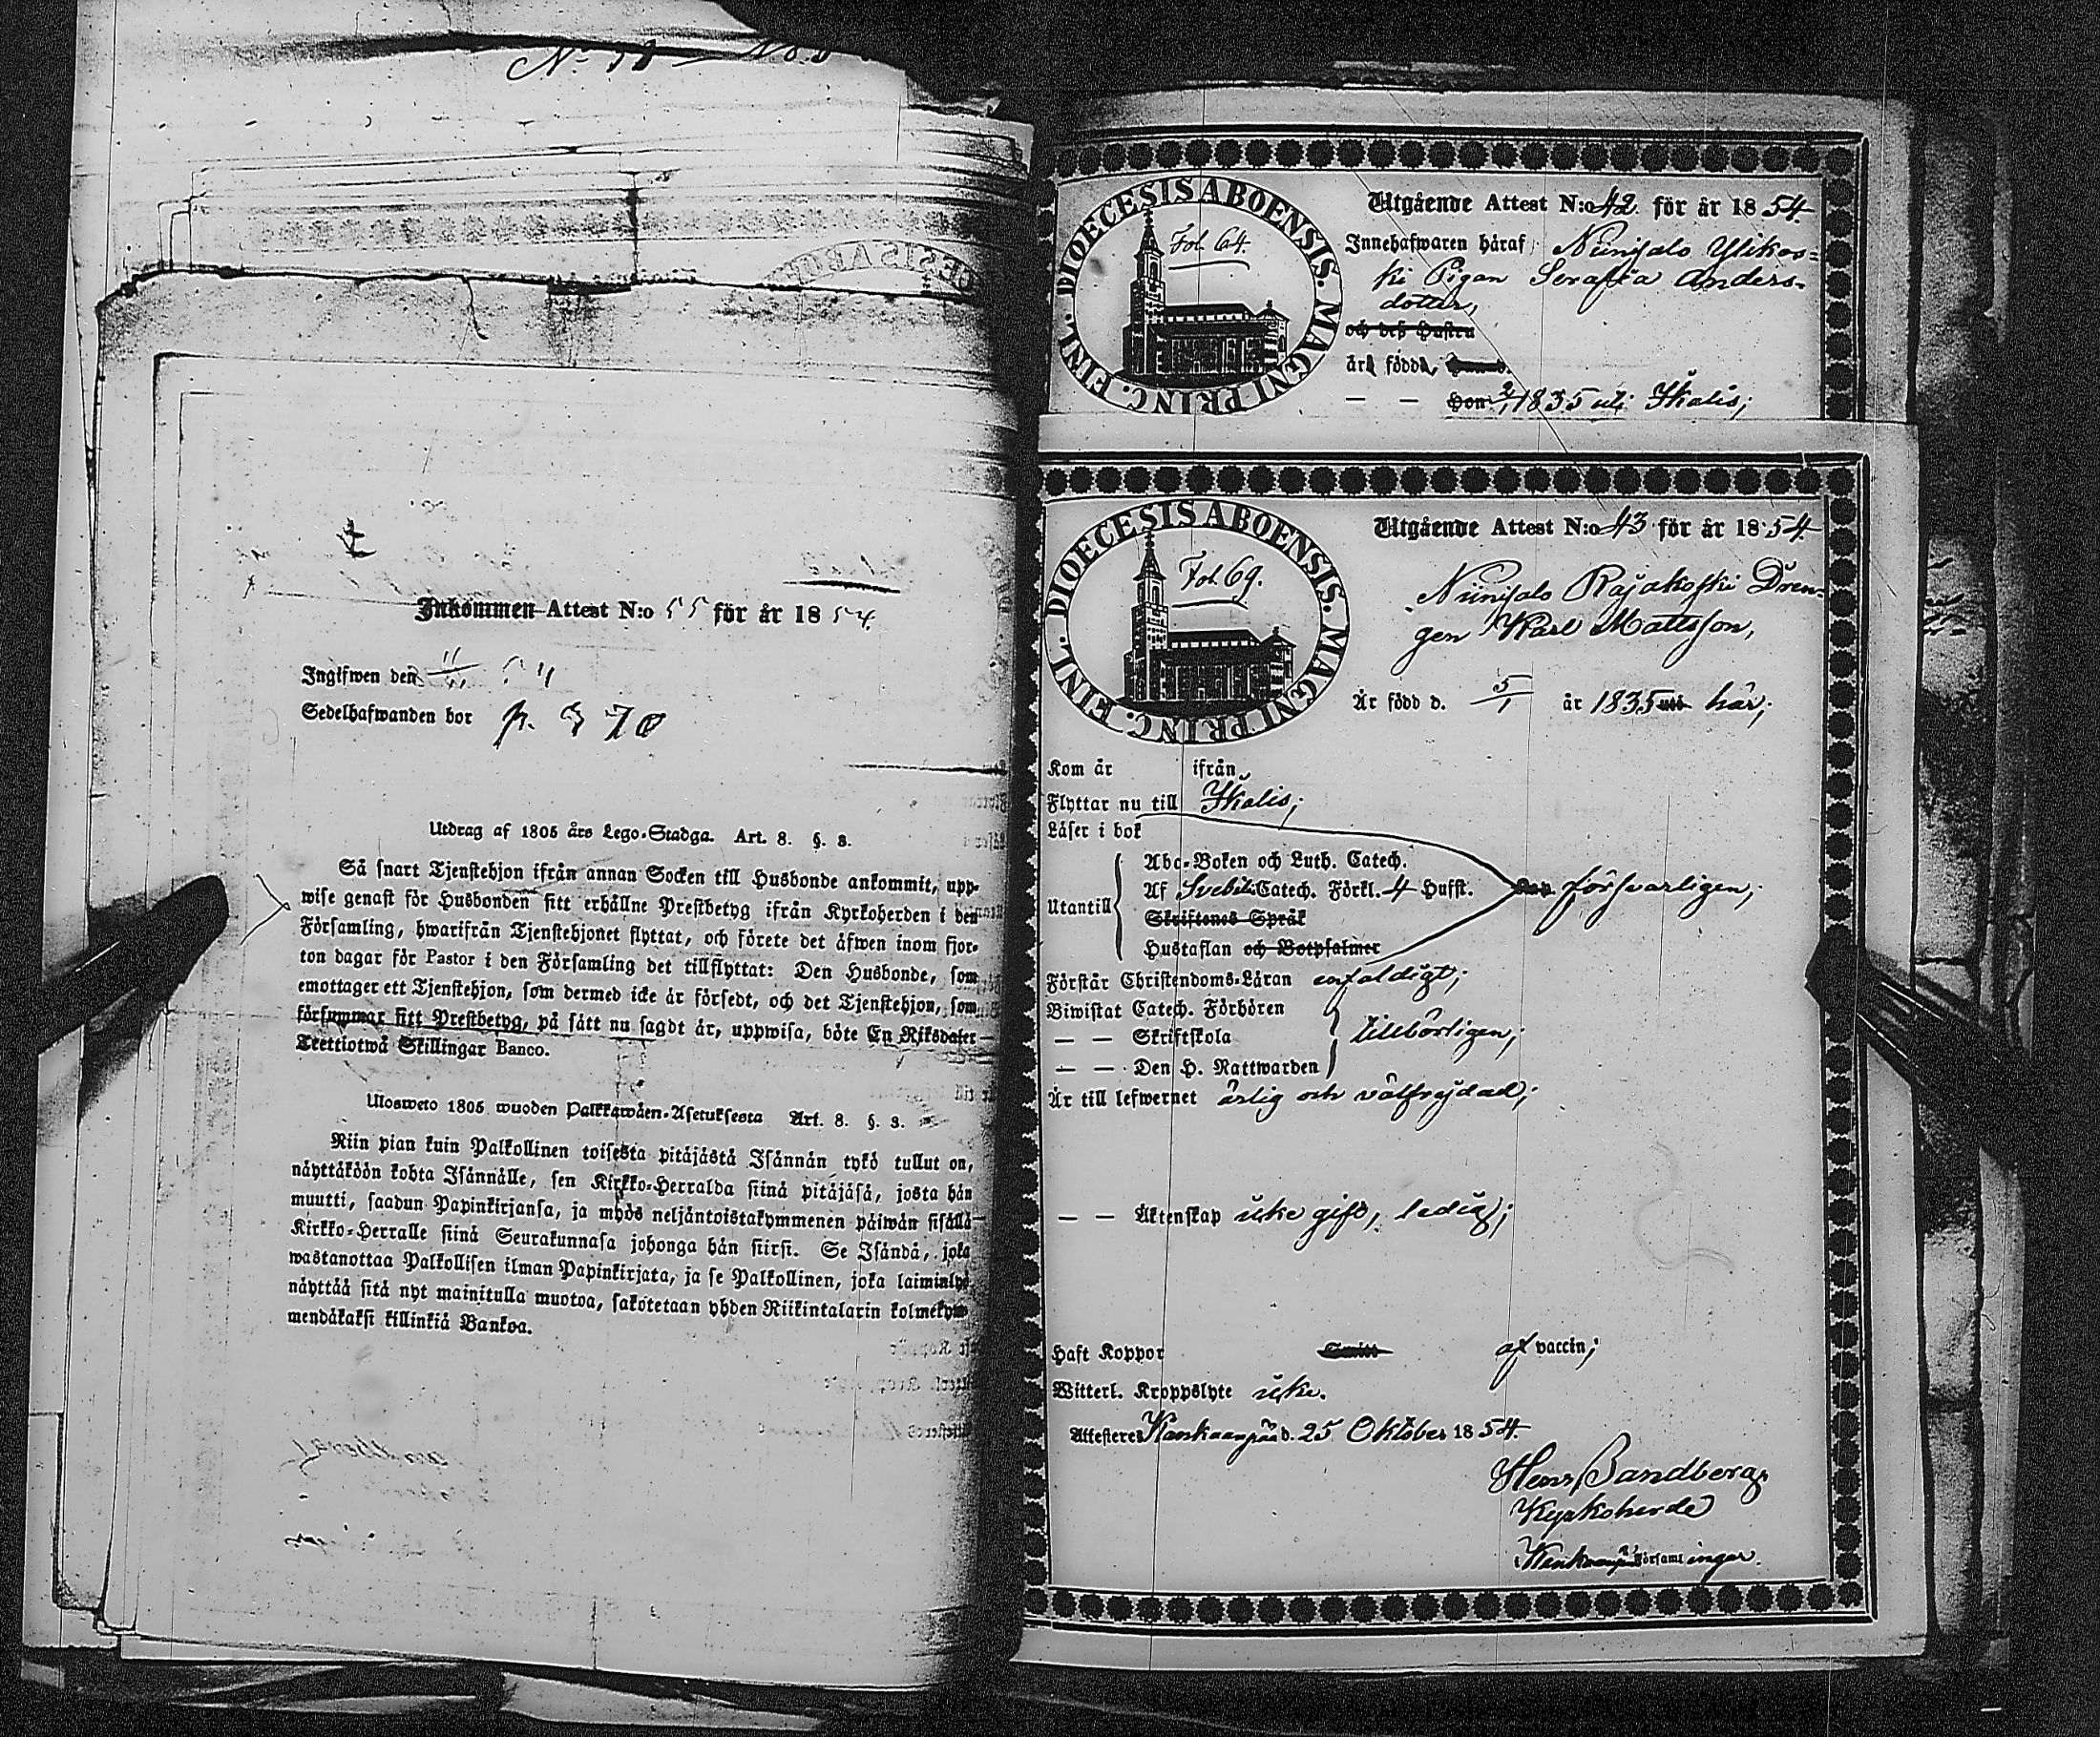 Inkommen Attest N:o 55 för år 1854.
Ingifwen den 11/11 54
Sedelhafwanden bor p. 370
Utdrag af 1805 års Lego-Stadga. Art. 8. §. 3.
Så snart Tjenstehjon ifrån annan Socken till Husbonde ankommit, upp-
wise genast för Husbonden sitt erhållne Prestbetyg ifrån Kyrkoherden i den
Församling, hwarifrån Tjenstehjonet flyttat, och förete det äfwen inom fjor-
ton dagar för Pastor i den Församling det tillflyttat: Den Husbonde, som
emottager ett Tjenstehjon, som dermed icke är försedt, och det Tjenstehjon, som
försummar sitt Prestbetyg, på sätt nu sagdt är, uppwisa, böte En Riksdaler
Trettiotwå Skillingar Banco.
Ulosweto 1805 wuoden Palkkawäen-Asetuksesta Art. 8. §. 3.
Niin pian kuin Palkollinen toisesta pitäjästä Isännän tykö tullut on,
näyttäköön kohta Isännälle, sen Kirkko-Herralda siinä pitäjäsä, josta hän
muutti, saadun Papinkirjansa, ja myös neljäntoistakymmenen päiwän sisällä
Kirkko-Herralle siinä Seurakunnasa johonga hän siirsi. Se Isändä, joka
wastanottaa Palkollisen ilman Papinkirjata, ja se Palkollinen, joka laiminlyö
näyttää sitä nyt mainitulla muotoa, sakotetaan yhden Riikintalarin kolmekym-
mendäkaksi killinkiä Bankoa.
DIOECESIS ABOENSIS. MAGNI PRINC. FINL.
Fol. 64.
Utgående Attest N:o 42 för år 1854.
Innehafwaren häraf, Niinisalo Ylikos-
ki Pigan Serafia Anders-
dotter,
och dess Hustru
är född,
— — Hon 2/1 1835 uti Ikalis;
DIOECESIS ABOENSIS. MAGNI PRINC. FINL.
Fol. 69.
Utgående Attest N:o 43 för år 1854.
Niinisalo Rajakoski Dren-
gen Karl Mattsson,
Är född d. 5/1 år 1835 uti här;
Kom år ifrån
Flyttar nu till Ikalis;
Läser i bok
Utantill
Abc-Boken och Luth. Catech.
Af Svebil. Catech. Förkl. 4 Hufst.
försvarligen;
Skriftenes Språk
Hustaflan och Botpsalmer
Förstår Christendoms-Läran enfaldigt;
Biwistat Catech. Förhören
— — Skriftskola tillbörligen;
— — Den H. Nattwarden
Är till lefwernet ärlig och välfrejdad;
— — Äktenskap icke gift, ledig;
Haft Koppor Smitt af vaccin;
Witterl. Kroppslyte icke.
Attesteres Kankaanpää d. 25 Oktober 1854.
Henr. Sandberg
Kyrkoherde
Kankaanpää församlingar.